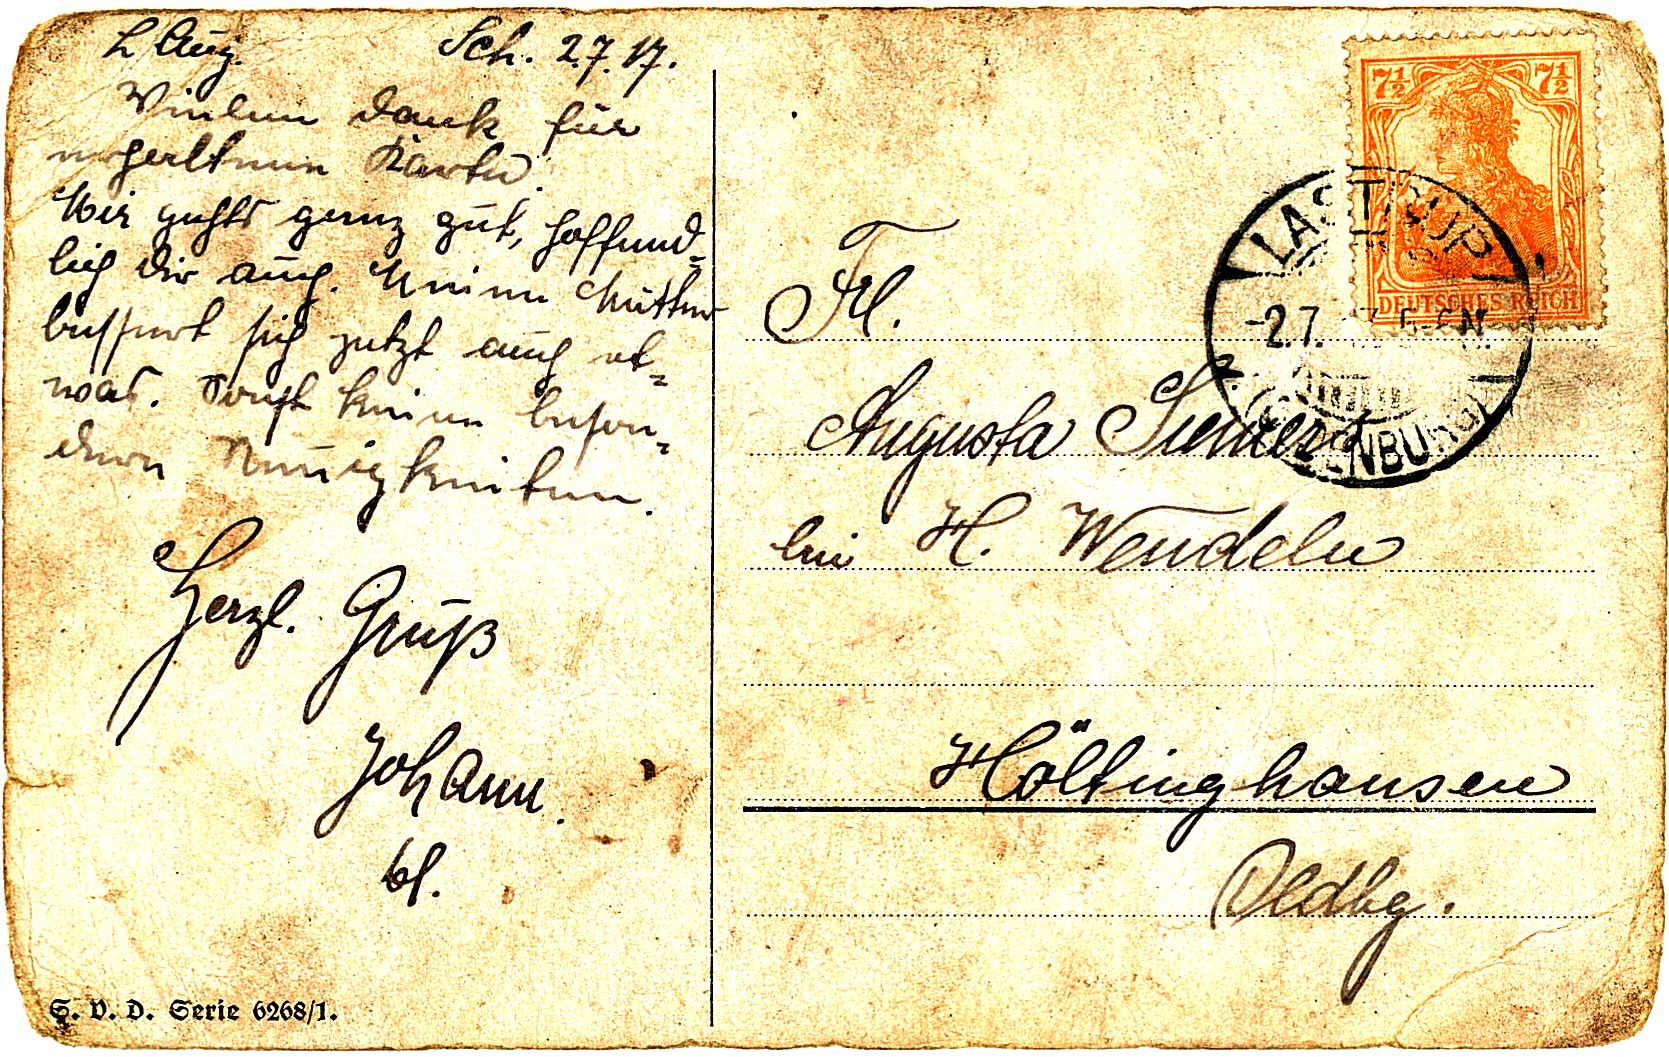 L. Aug. Sch. 2.7.17.
Vielen Dank für
erhaltene Karte.
Mir gehts ganz gut, hoffend-
lich Dir auch. Meine Mutter
bessert sich jetzt auch et-
was. Sonst keine beson-
dern Neuigkeiten.
Herzl. Gruß
Johann.
S. V. D. Serie 6268/1.
7½ 7½
DEUTSCHES REICH
LASTRUP
-2.7. 5-6 N.
OLDENBURG
Frl.
Augusta
bei H. Wendeln
Höltinghausen
Oldbg.